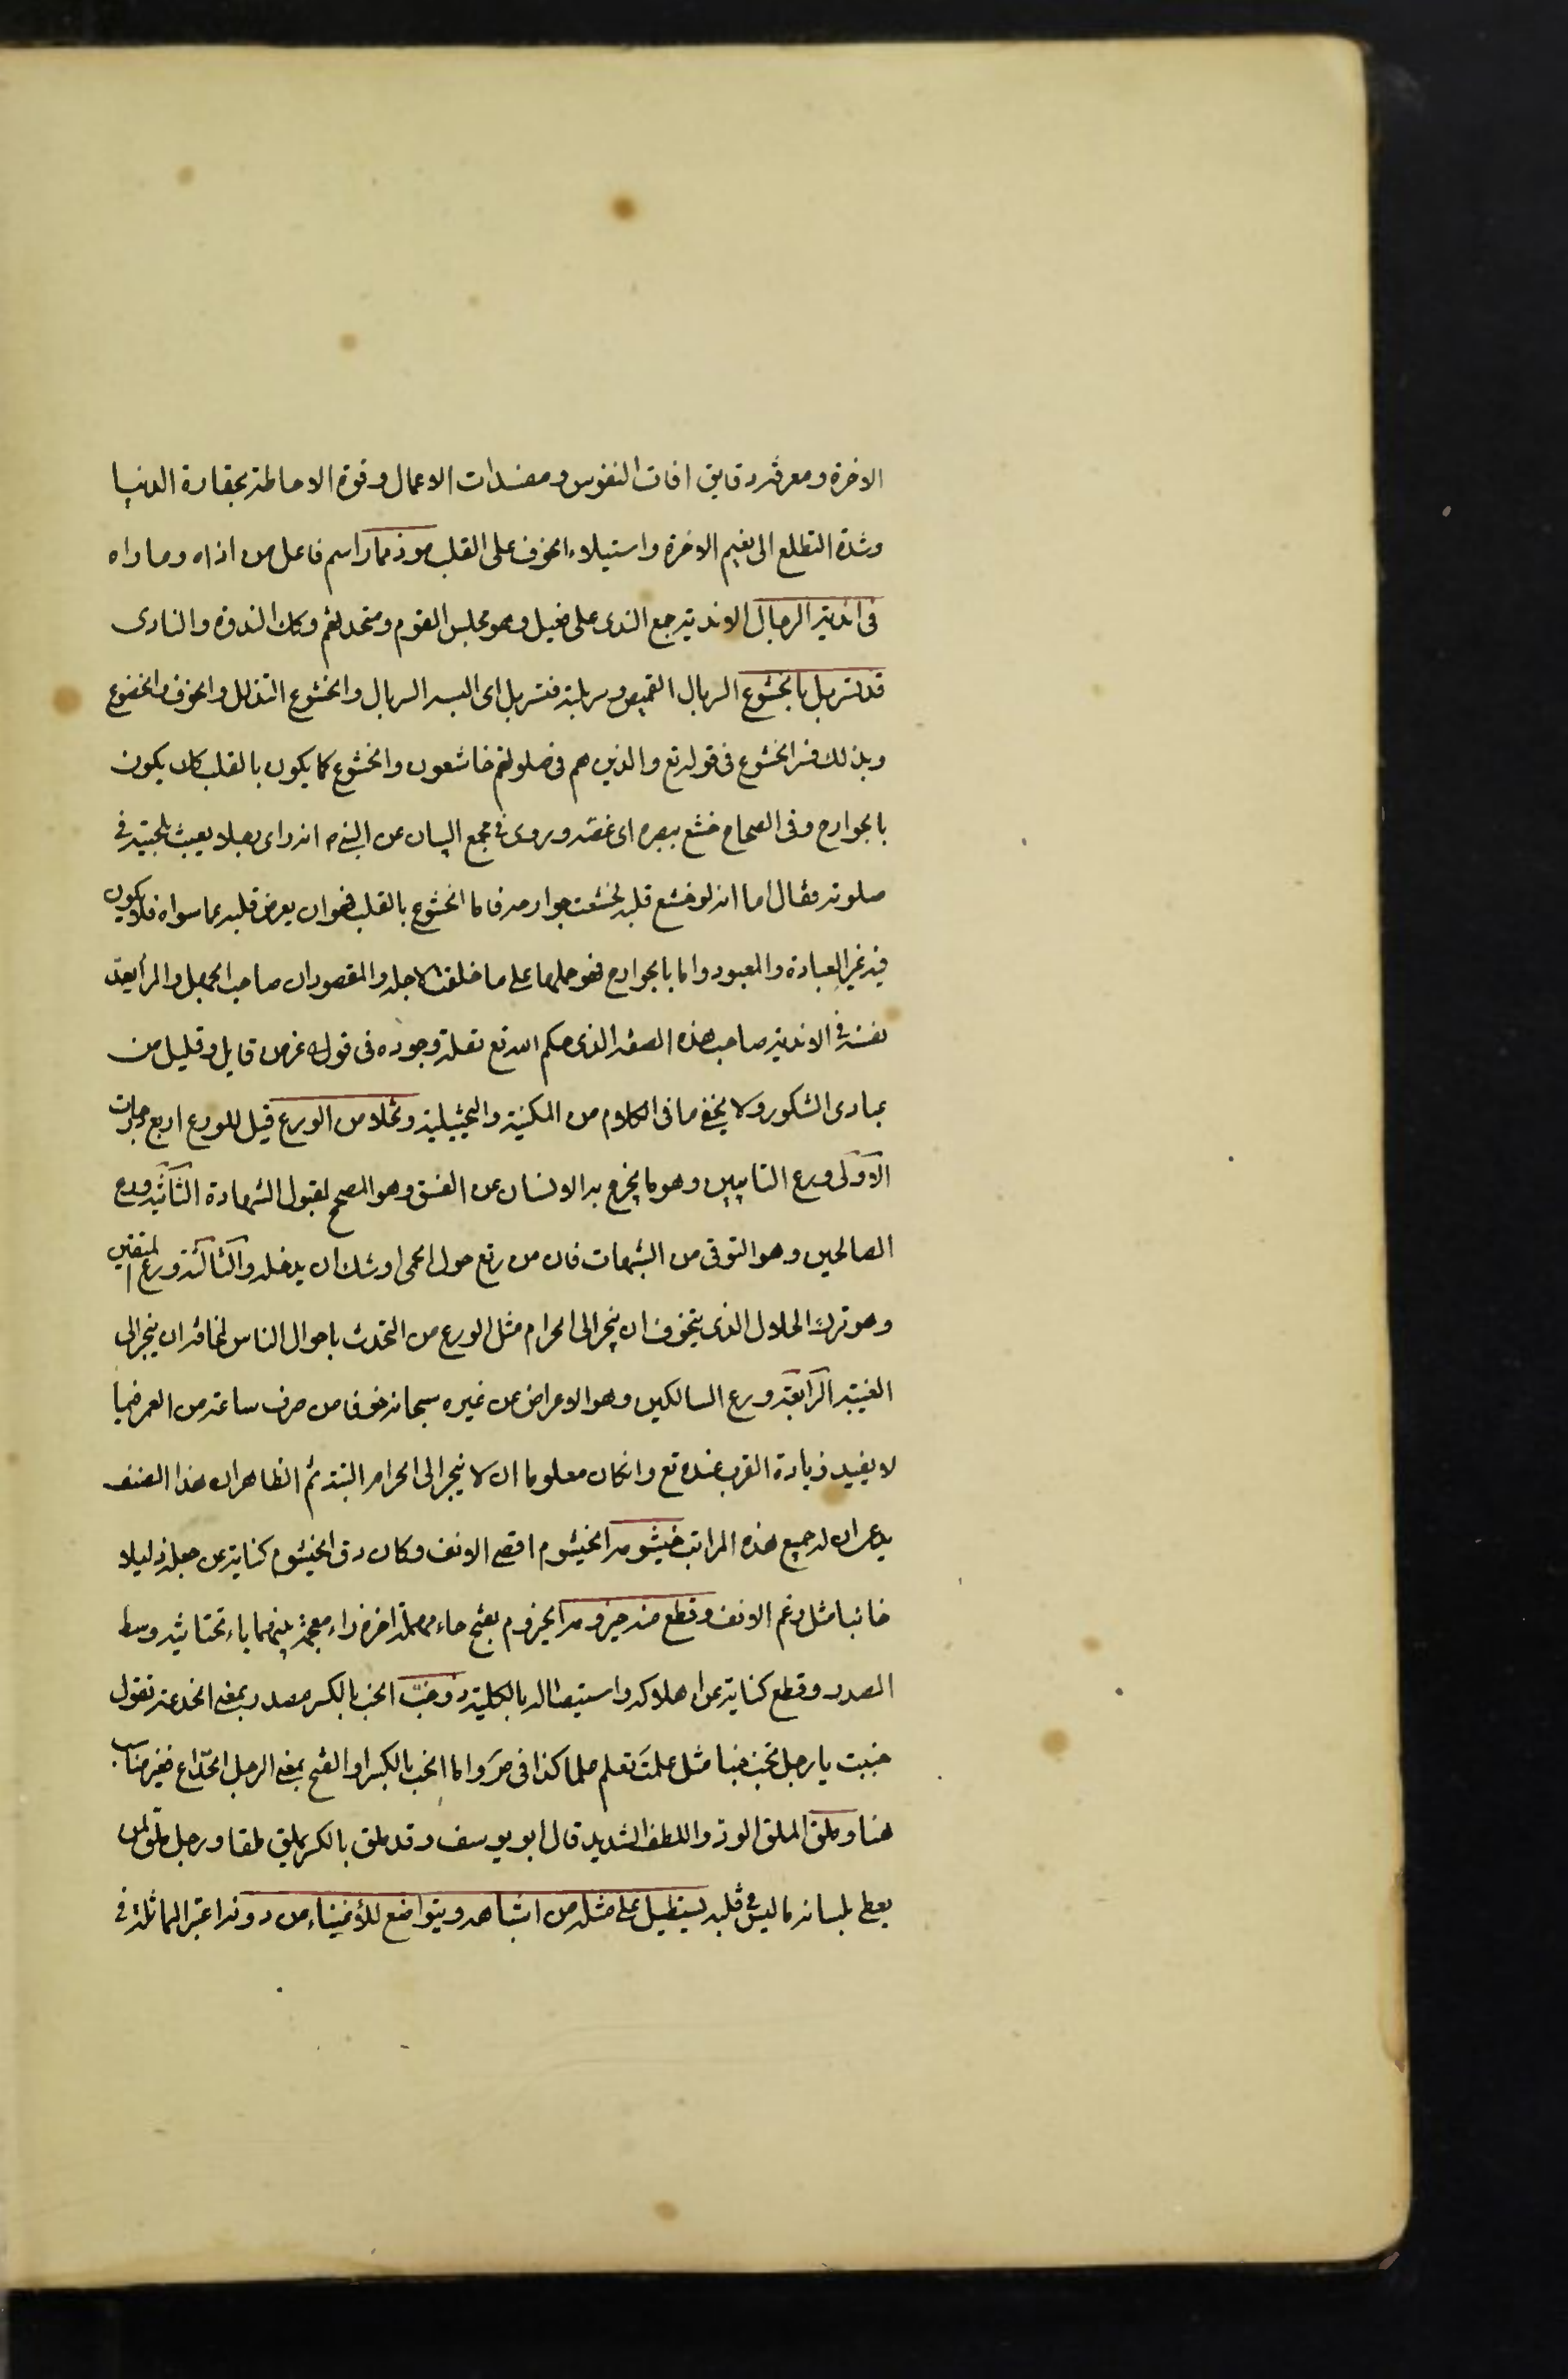 الاخرة ومعرفة دقايق افات النفوس ومفسدات الاعمال وقوة الاحاطة بحقارة الدنيا
وشدة التطلع الى نعيم الاخرة واستيلاء الخوف على القلب موذ ممار اسم فاعل من اذاه وماراه
فى اندية الرجال الاندية جمع الندى على فعيل وهو مجلس القوم ومتحدثهم وكك الندوة والنادى
قد تسربل بالخشوع السربال القميص وسربلته فتسربل اى البسه السربال والخشوع التذلل والخوف والخضوع
وبذلك فسر الخشوع فى قوله تع والذين هم فى صلوتهم خاشعون والخشوع كما يكون بالقلب كك يكون
بالجوارح وفى الصحاح خشع ببصره اى غضه وروى فى مجمع البيان عن النبى ص انه راى رجلا يعبث بلحيته فى
صلوته فقال اما انه لو خشع قلبه لخشعت جوارحه فاما الخشوع بالقلب فهو ان يعرض قلبه عما سواه فلا يكون
فيه غير العبادة والمعبود واما بالجوارح فهو حملها على ما خلقت لاجله والمقصود ان صاحب الجهل والمرا يعد
نفسه فى الاندية صاحب هذه الصفة الذى حكم الله تع بقلة وجوده فى قوله عز من قايل وقليل من
عبادى الشكور ولا يخفى ما فى الكلام من المكنية والتخييلية وتخلا من الورع قيل للورع اربع درجات
الاولى ورع التايبين وهو ما يخرج به الانسان عن الفسق وهو المصحح لقبول الشهادة الثانية ورع
الصالحين وهو التوقى من الشبهات فان من رتع حول الحمى اوشك ان يدخله والثالثة ورع المتقين
وهو ترك الحلال الذى يتخوف ان ينجر الى الحرام مثل الورع من التحدث باحوال الناس لمخافة ان ينجر الى
الغيبة الرابعة ورع السالكين وهو الاعراض عن غيره سبحانه خوفا من صرف ساعة من العمر فيما
لا يفيد زيادة القرب عنده تع وانكان معلوما ان لا ينجر الى الحرام البتة ثم الظاهر ان هذا الصنف
يدعى ان له جميع هذه المراتب خيشومه الخيشوم اقصى الانف وكان دق الخيشوم كناية عن جعله ذليلا
خائبا مثل رغم الانف وقطع منه حيزومه الحيزوم بفتح حاء مهملة اخره زاء معجمة بينهما ياء تحتانية وسط
الصدر وقطع كناية عن اهلاكه واستيصاله بالكلية ذو خب الخب بالكسر مصدر بمعنى الخدعة تقول
خببت يا رجل تخب خبا مثل علمت تعلم علما كذا فى ص واما الخب بالكسر او الفتح بمعنى الرجل الخداع فغير مناسب
هنا وملق الملق الود واللطف الشديد قال ابو يوسف وقد ملق بالكسر يملق ملقا ورجل ملق لمن
يعطى بلسانه ما ليس فى قلبه يستطيل على مثله من اشباهه ويتواضع للأغنياء من دونه اعتبر المماثلة فى